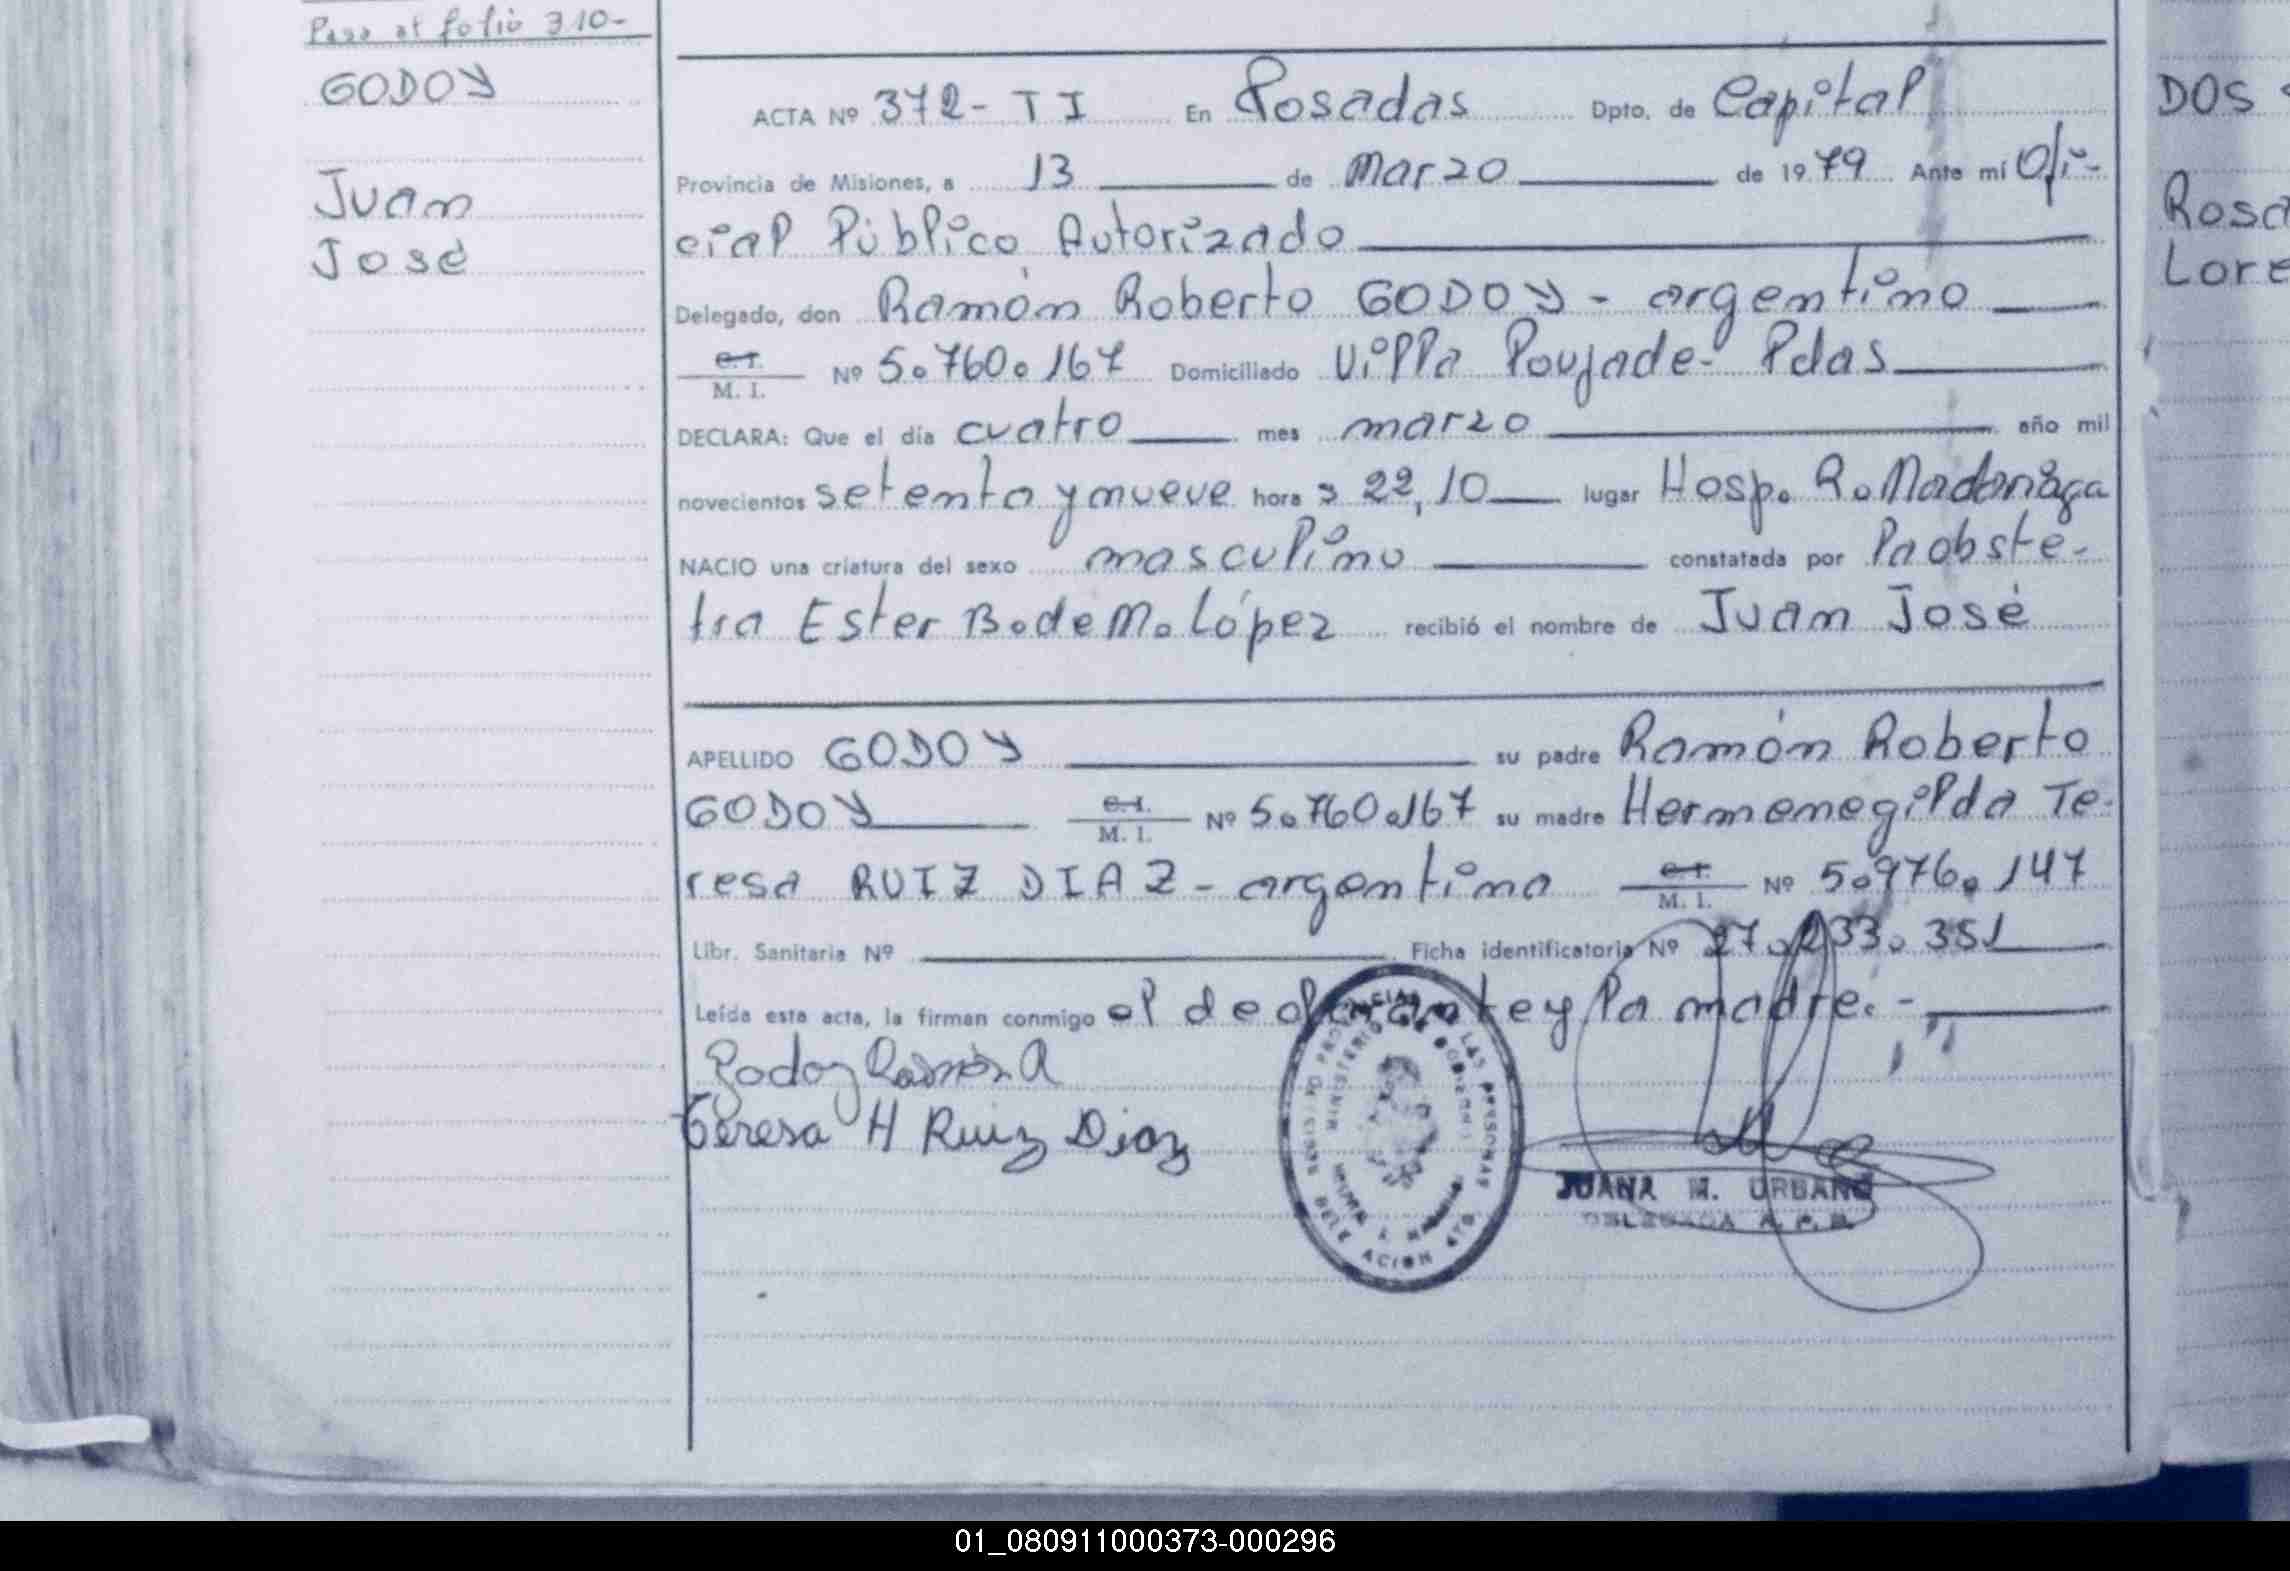 Pasa al folio 310-
GODOY
Juan
José
ACTA Nº 372- TI En Posadas Dpto. de Capital
Provincia de Misiones, a 13 de Marzo de 1979 Ante mí Ofi-
cial Público Autorizado
Delegado, don Ramón Roberto GODOY - argentino
C.I.
M. I. Nº 5.760.167 Domiciliado Villa Poujade- Pdas
DECLARA: Que el día cuatro mes marzo año mil
novecientos setenta y nueve hora s 22,10 lugar Hosp. R. Madariaga
NACIO una criatura del sexo masculino constatada por la obste-
tra Ester B. de M. López recibió el nombre de Juan José
APELLIDO GODOY su padre Ramón Roberto
GODOY C.I.
M. I. Nº 5.760.167 su madre Hermenegilda Te-
resa RUIZ DIAZ - argentina C.I.
M. I. Nº 5.976.147
Libr. Sanitaria Nº Ficha identificatoria Nº 27.233.351
Leída esta acta, la firman conmigo el declarante y la madre.-
Godoy Ramón R
Teresa H Ruiz Diaz
JUANA M. URBANO
DELEGADA
DOS
Rosa
Lore
01_080911000373-000296